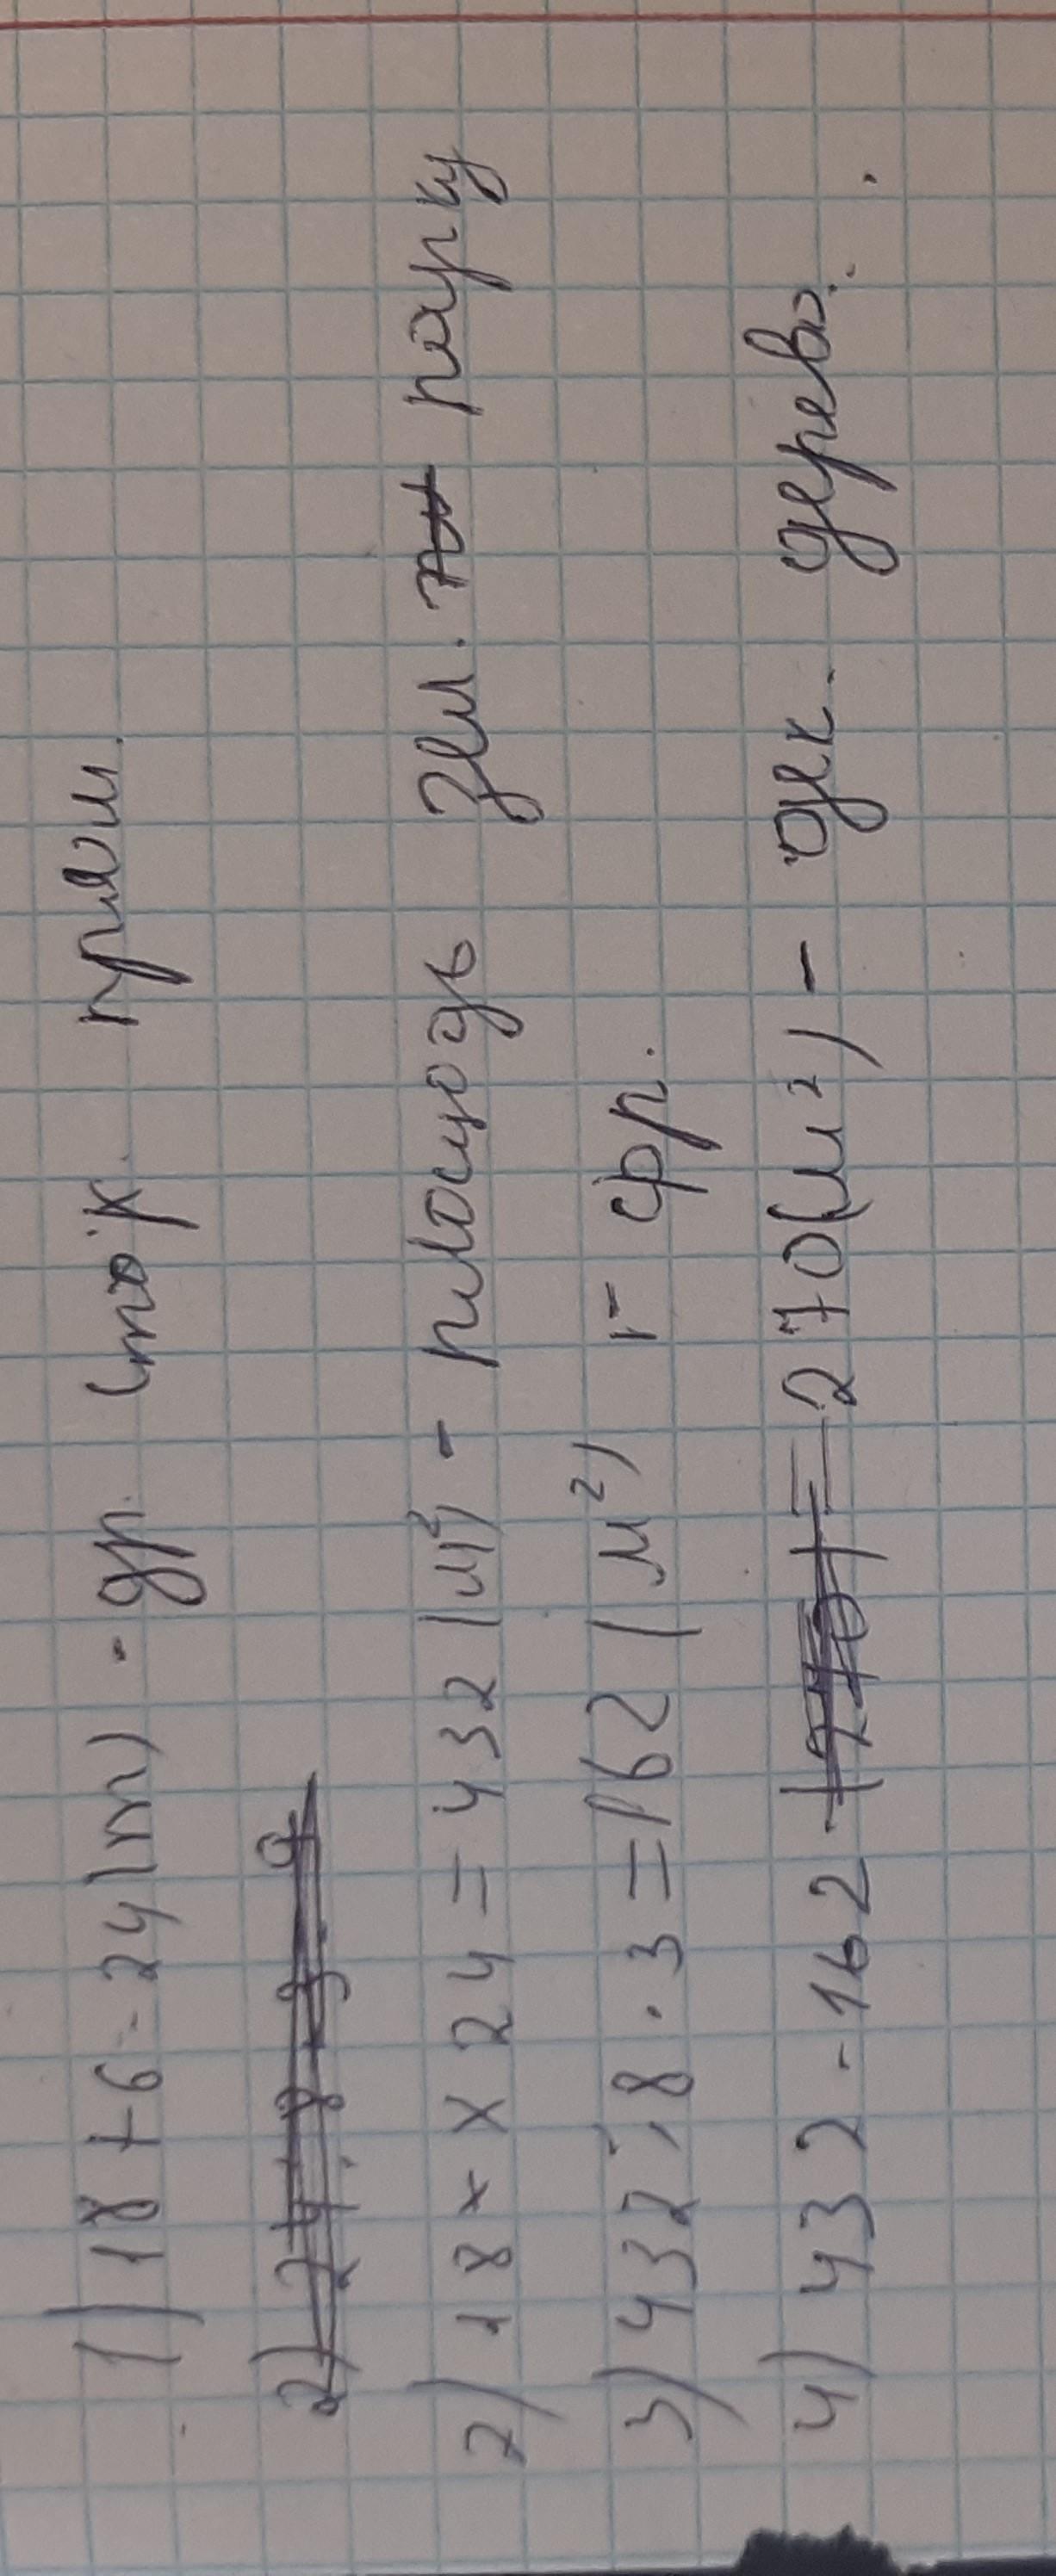 1) 18 + 6 - 24 (m) - др. стор. прям.
2) 18 × × 24 = 432 (м²) - площадь зем. парку
3) 432 : 8 · 3 = 162 (м²) - фр.
4) 432 - 162 = 270 (м²) - дек. дерев.